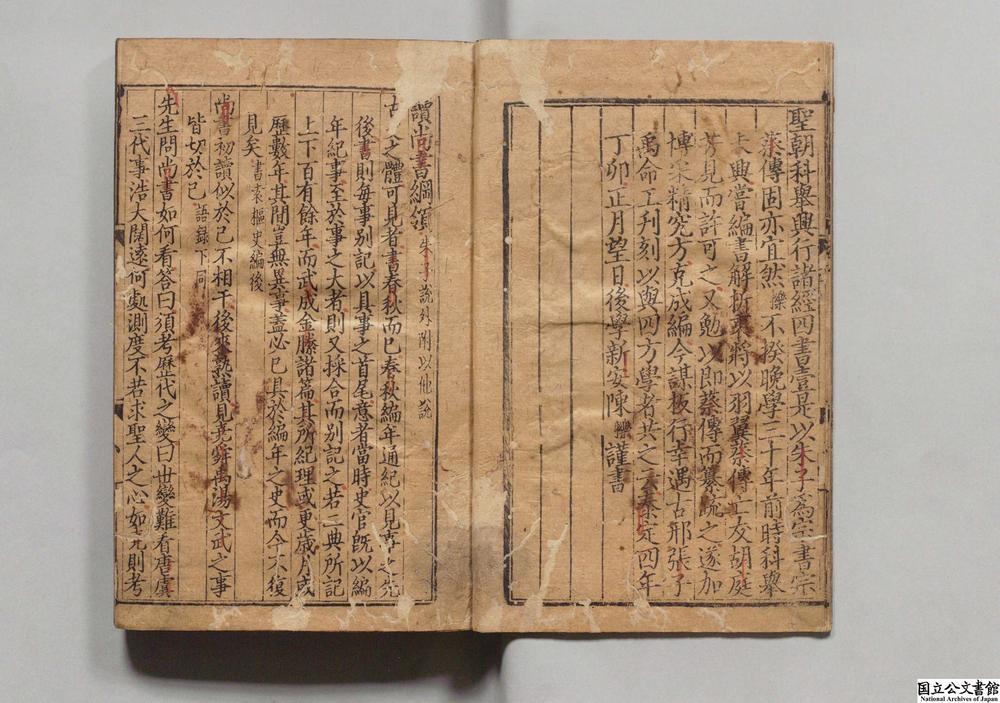 聖朝科舉興行諸經四書壹是以朱子爲宗書宗
蔡傳固亦宜然櫟不揆晚學三十年前時科舉
未興嘗編書解折衷將以羽翼蔡傳亡友胡庭
芳見而許可之又勉以即蔡傳而纂疏之遂加
博采精究方克成編今謀板行幸遇古邢張子
禹命工刋刻以與四方學者共之云泰定四年
丁卯正月望日後學新安陳櫟謹書
讀尚書綱領朱子說外附以他說
古之體可見者書春秋而已春秋編年通紀以見事之先
後書則每事別記以具事之首尾意者當時史官旣以編
年紀事至於事之大者則又採合而別記之若二典所記
上下百有餘年而武成金縢諸篇其所紀理或更歲月或
歷數年其間豈無異事盖必已具於編年之史而今不復
見矣書袁樞史編後
尚書初讀似於己不相干後來熟讀見堯舜禹湯文武之事
皆切於己語錄下同
先生問尚書如何看答曰須考歷代之變曰世變難看唐虞
三代事浩大闊遠何處測度不若求聖人之心如堯則考
国立公文書館
National Archives of Japan